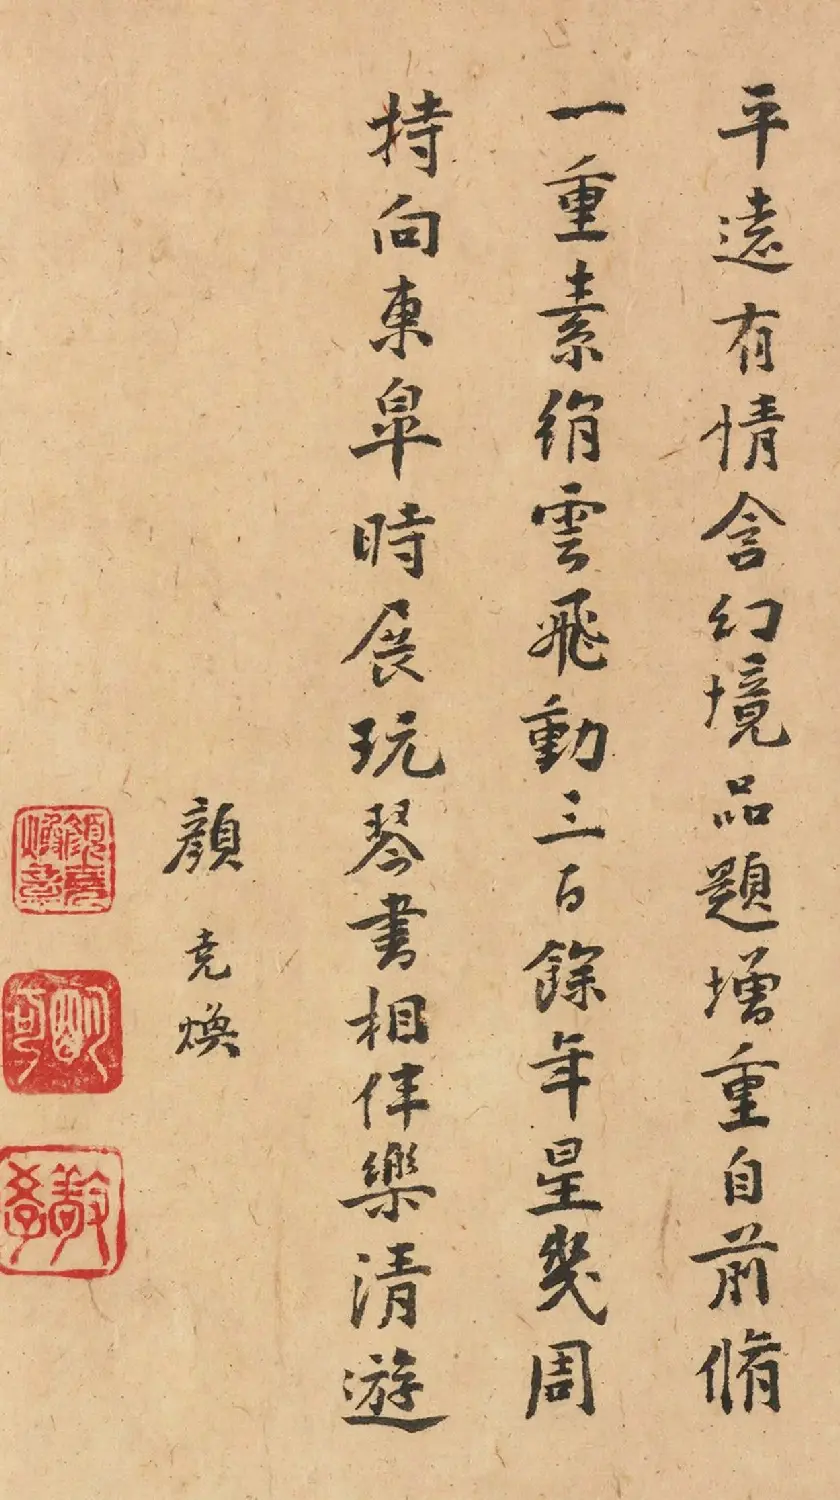 平遠有情含幻境品題增重自前脩
一重素絹雲飛動三百餘年星幾周
持向東皐時展玩琴書相伴樂清遊
顏堯煥
顏堯煥章
明可